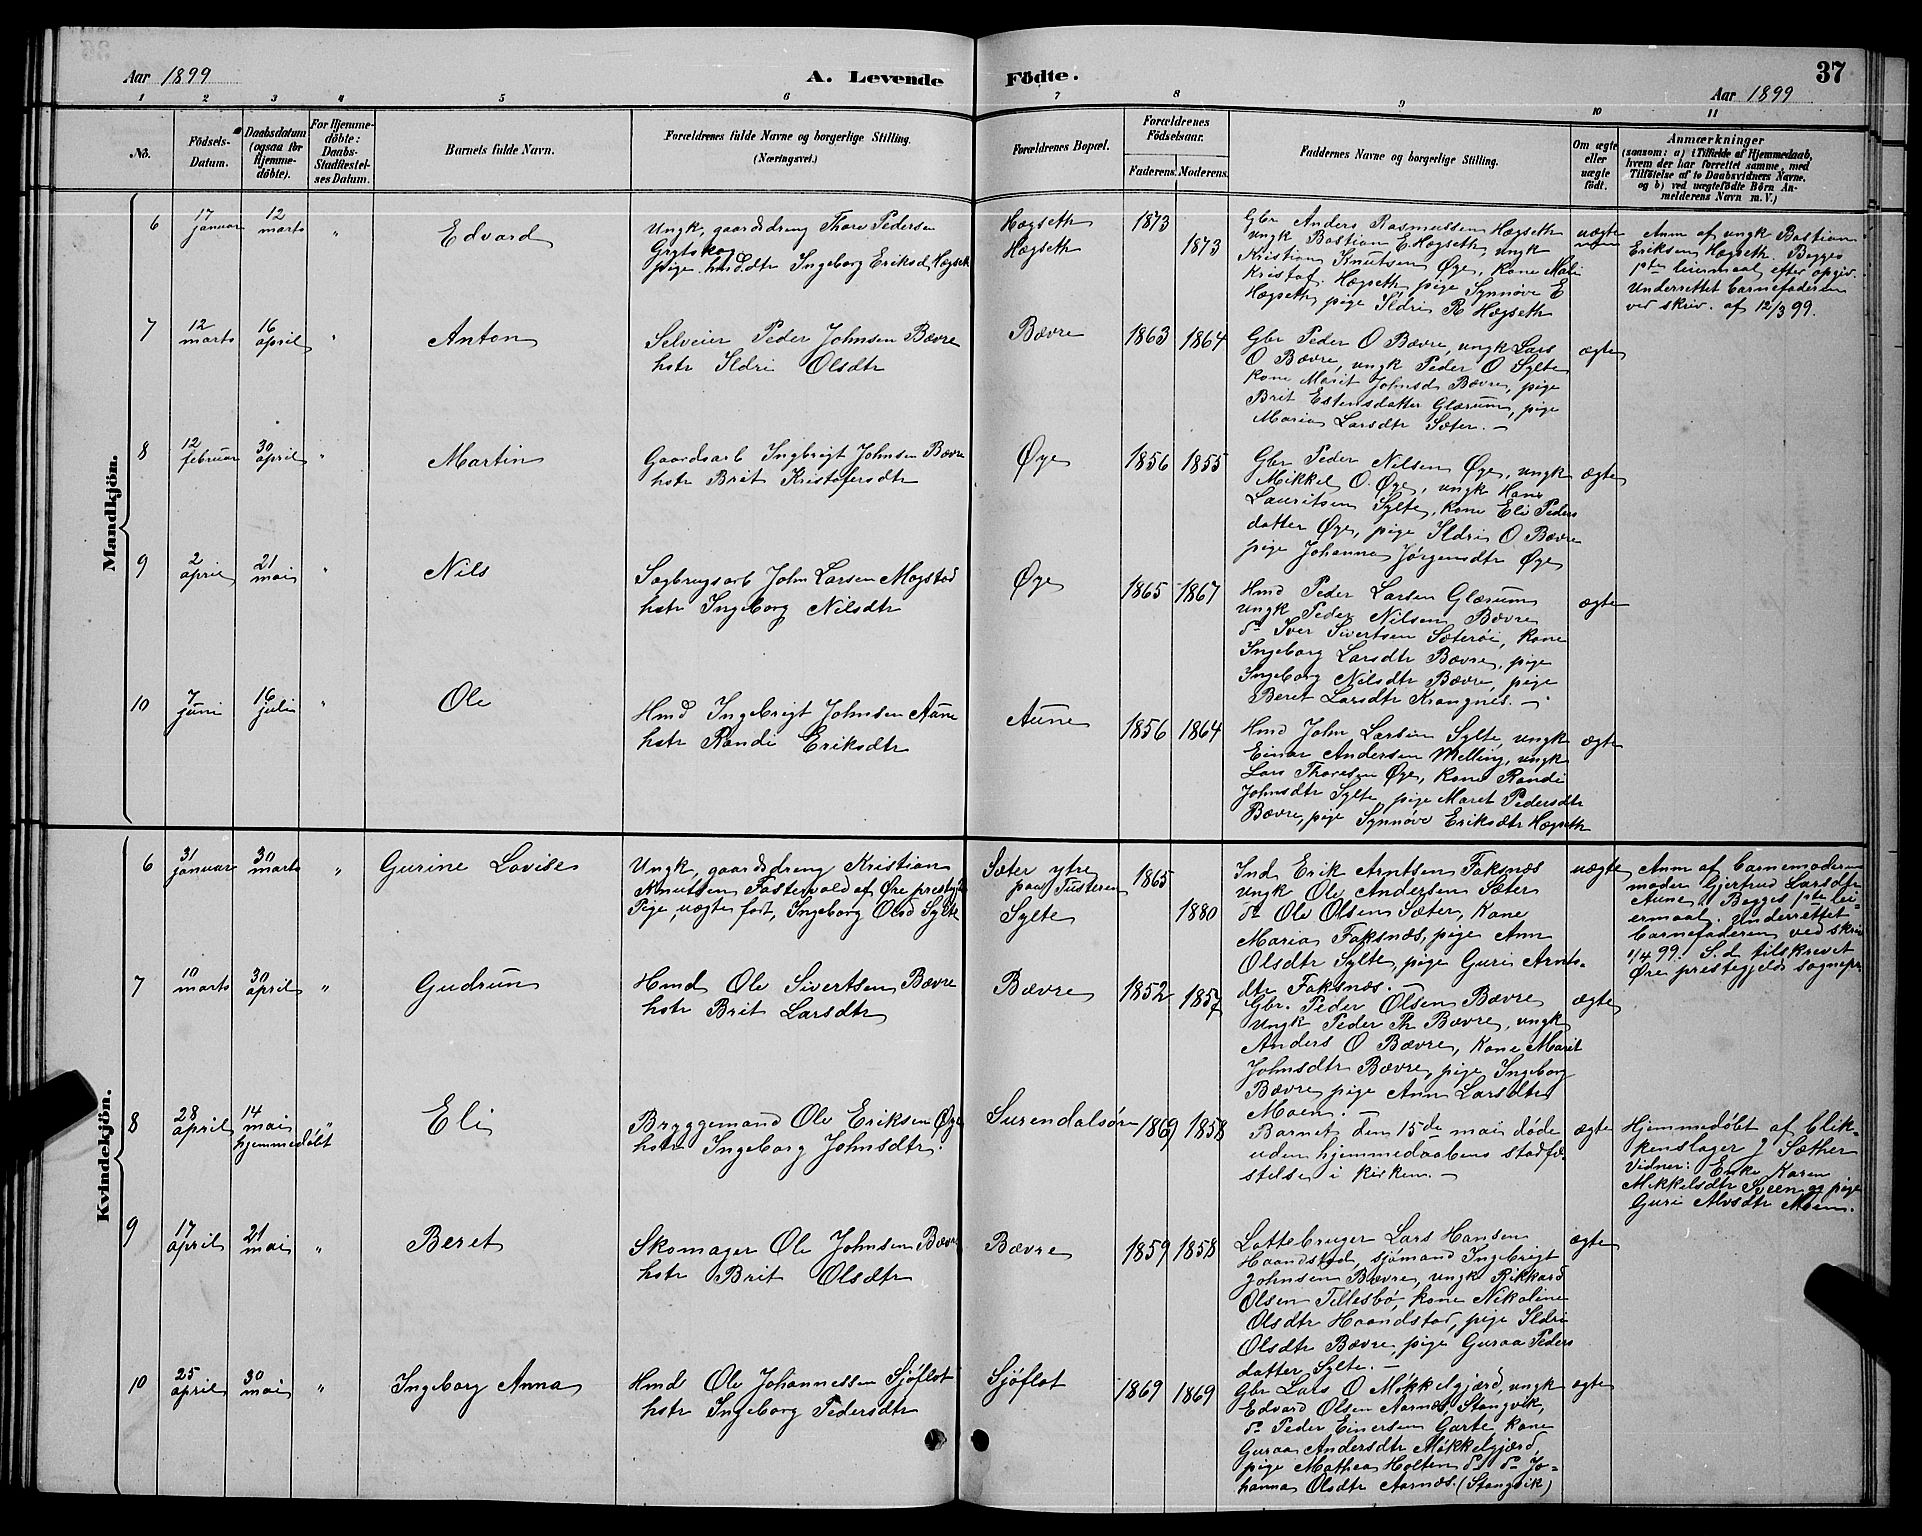 Aar 1899
A. Levende
Födte.
37
Aar 1899
1 2 3 4 5 6 7 8 9 10 11
No.
Födsels-
Datum.
Daabsdatum
(ogsaa for
Hjemme-
döbte).
For Hjemme-
döbte:
Daabs-
Stadfæstel-
ses Datum.
Barnets fulde Navn.
Forældrenes fulde Navne og borgerlige Stilling.
(Næringsvei.)
Forældrenes Bopæl.
Forældrenes
Födselsaar.
Faderens. Moderens.
Faddernes Navne og borgerlige Stilling.
Om ægte
eller
uægte
födt.
Anmærkninger
(saasom: a) i Tilfælde af Hjemmedaab,
hvem der har forrettet samme, med
Tilföielse af to Daabsvidners Navne.
og b) ved uægtefödte Börn An-
melderens Navn m. V.)
Mandkjön.
6
17
januar
12
marts
"
Edvard
Ungk, gaardsdreng Thore Pedersen
pige hmd.dtr Ingeborg Eriksd Høgseth
Høgseth
Høgseth
1873
1873
Gbr Anders Rasmussen Høgseth
ungk Bastian E. Høgseth, ungk
Kristian Knutsen Øye, kone Mali
Kristof. Høgseth, pige Synnøve E
Høgseth, pige Ildri R Høgseth
uægte
Anm af ungk Bastian
Eriksen Høgseth. Begges
1ste leiermaal efter opgiv.
Underrettet barnefaderen
ved skriv. af 12/3 99.
7
12
marts
16
april
"
Anton
Selveier Peder Johnsen Bævre
hstr Ildri Olsdtr
Bævre
1863
1864
Gbr Peder O Bævre, ungk Lars
O Bævre, ungk Peder O Sylte
kone Marit Johnsd Bævre, pige
Brit Estensdatter Glærum, pige
Maria Larsdtr Sæter. –
ægte
8
12
februar
30
april
"
Martin
Gaardsarb Ingbrigt Johnsen Bævre
hstr Brit Kristofersdtr
Øye
1856
1855
Gbr Peder Nilsen Øye, ungk
Mikkel O. Øye, ungk Hans
Lauritsen Sylte, kone Eli Peders
datter Øye, pige Ildri O Bævre
pige Johanna Jørgensdtr Øye
ægte
9
2
april
21
mai
"
Nils
Sagbrugsarb John Larsen Mogstad
hstr Ingeborg Nilsdtr
Øye
1865
1867
Hmd Peder Larsen Glærum
ungk Peder Nilsen Bævre
do Iver Sivertsen Sæterøi, kone
Ingeborg Larsdtr Bævre, pige
Ingeborg Nilsdtr Bævre, pige
Beret Larsdtr Krangnes. –
ægte
10
7
juni
16
juli
"
Ole
Hmd Ingebrigt Johnsen Aune
hstr Randi Eriksdtr
Aune
1856
1864
Hmd John Larsen Sylte, ungk
Einar Andersen Melling, ungk
Lars Thoresen Øye, kone Randi
Johnsdtr Sylte, pige Maret Pedersdtr
Bævre, pige Synnøve Eriksdtr Høgseth
ægte
Kvindekjön.
6
31
januar
30
marts
"
Gurine Lovise
Ungk, gaardsdreng Kristian
Knutsen Fostervold af Øre prestgj
Pige, uægte født, Ingeborg Olsd Sylte
Sæter ytre
paa Tusteren
Sylte
1865
1880
Ind Erik Arntsen Faksnæs
ungk Ole Andersen Sæter
do Ole Olsen Sæter, kone
Maria Faksnæs, pige Ann
Olsdtr Sylte, pige Guri Arnts-
dtr Faksnæs. –
uægte
Anm af barnemoderens
moder Gjertrud Larsdtr
Aune. Begges 1ste lei-
ermaal. Underrettet
barnefaderen ved skriv
1/4 99. S. d tilskrevet
Øre prestegjelds sognepr
7
10
marts
30
april
"
Gudrun
Hmd Ole Sivertsen Bævre
hstr Brit Larsdtr
Bævre
1852
1857
Gbr. Peder Olsen Bævre
ungk Peder Th Bævre, ungk
Anders O Bævre, kone Marit
Johnsdtr Bævre, pige Ingeborg
Bævre pige Ann Larsdtr
Moen. –
ægte
8
28
april
14
mai
hjemmedøbt
"
Eli
Bryggemand Ole Eriksen Øye
hstr Ingeborg Johnsdtr.
Surendalsøren
1869
1858
Barnet den 15de mai døde
uden hjemmedaabens stadfæ-
stelse i kirken. –
ægte
Hjemmedøbt af blik-
kenslager J Sæther
Vidner: Enke Karen
Mikkelsdtr Sveen og pige
Guri Alvsdtr Moen.
9
17
april
21
mai
"
Beret
Skomager Ole Johnsen Bævre
hstr Brit Olsdtr
Bævre
1859
1858
Lottebruger Lars Hansen
Haandstad, sjømand Ingebrigt
Johnsen Bævre, ungk Rikkard
Olsen Tillesbø, kone Nikoline
Olsdtr Haandstad, pige Ildri
Olsdtr Bævre, pige Guraa Peders
datter Sylte. –
ægte
10
25
april
30
mai
"
Ingeborg Anna
Hmd Ole Johannessen Sjøflot
hstr Ingeborg Pedersdtr
Sjøflot
1869
1869
Gbr Lars O Møkkelgjærd, ungk
Edvard Olsen Aarnes, Stangvik,
do Peder Einersen Garte kone
Guraa Andersdtr Møkkelgjærd,
pige Mathea Holten do do Jo-
hanna Olsdtr Aarnæs. (Stangvik)
ægte